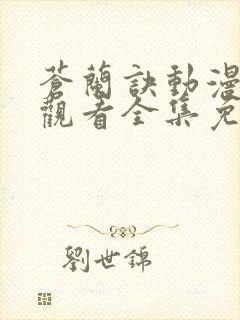 蒼蘭訣動漫
觀看全集免
劉世錦